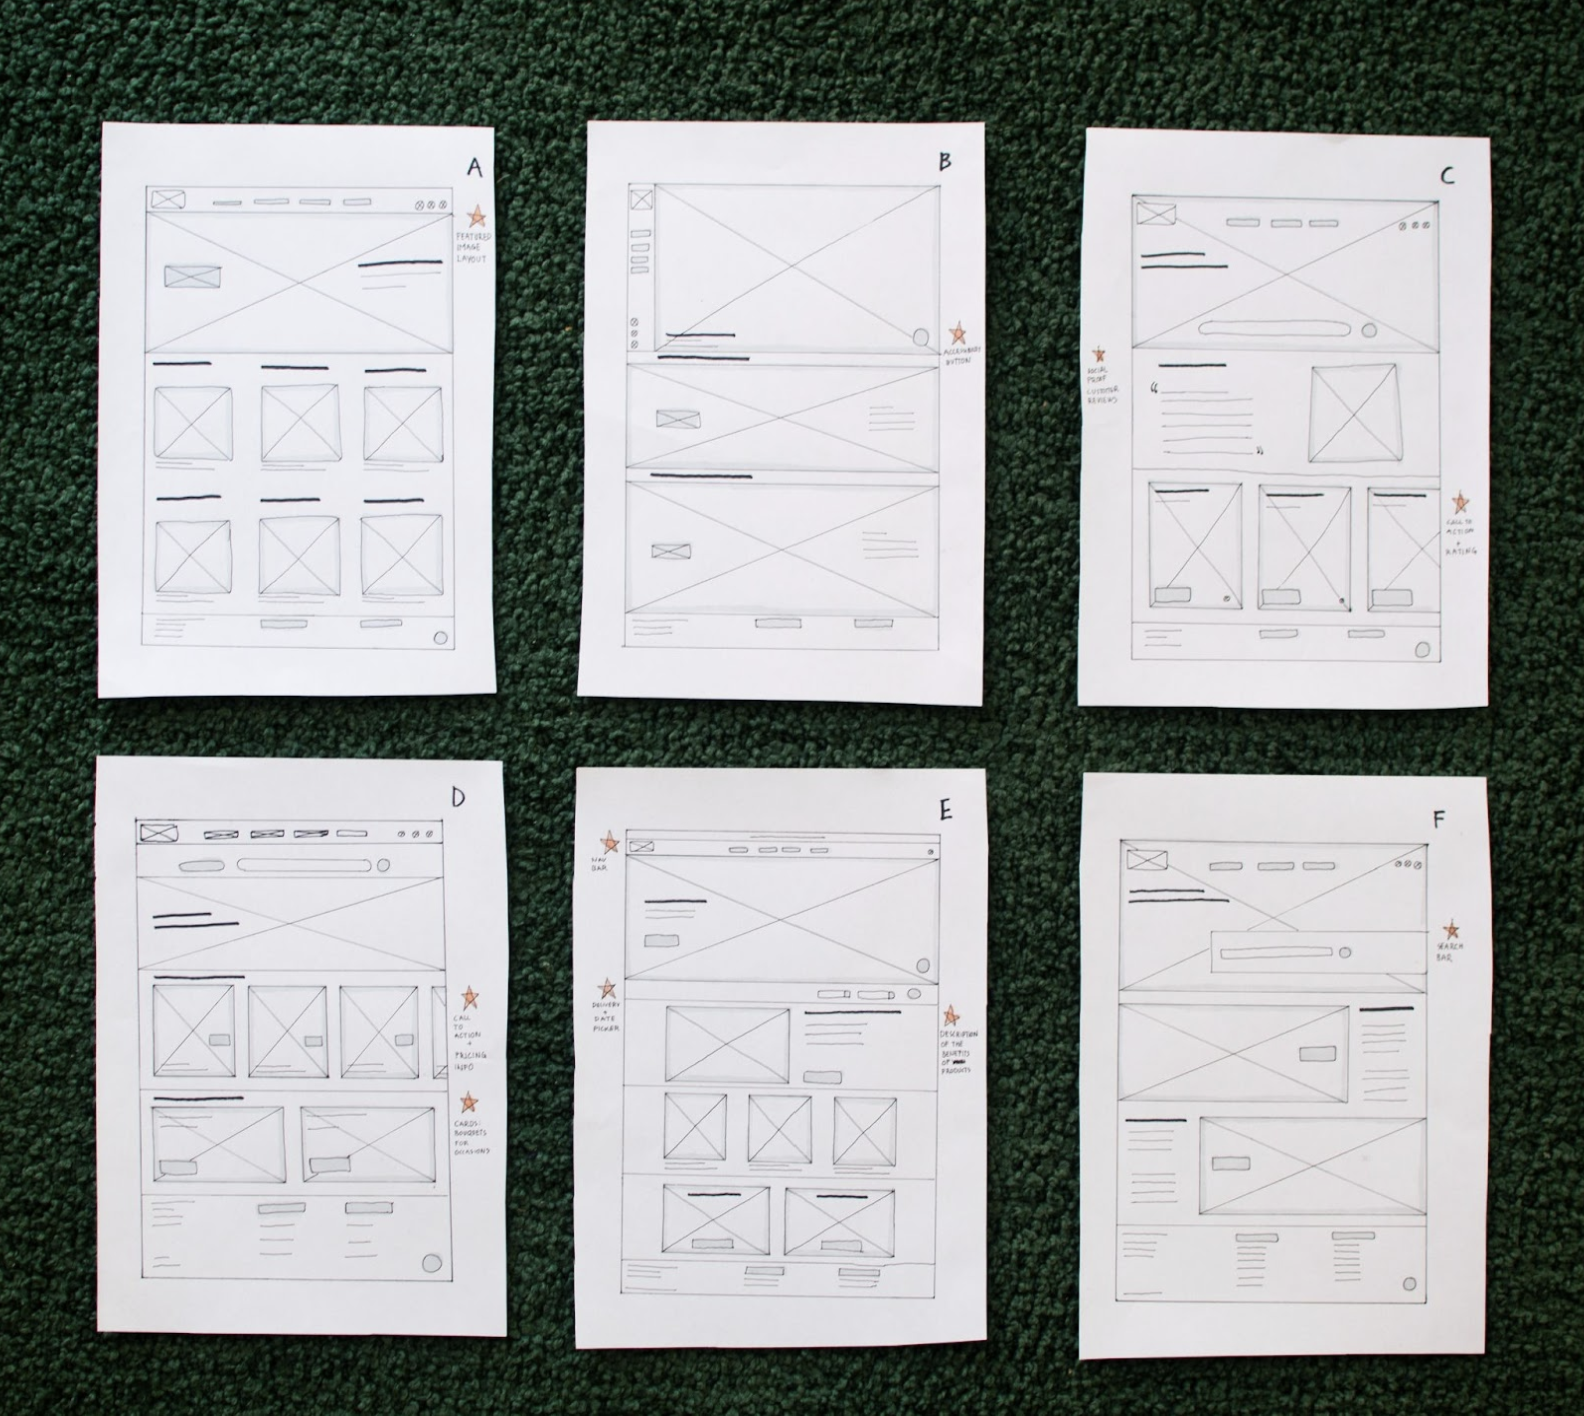 A
FEATURED
IMAGE
LAYOUT
B
ACCESSIBILITY
BUTTON
C
SOCIAL
PROOF
CUSTOMER
REVIEWS
CALL TO
ACTION
+
RATING
D
CALL
TO
ACTION
+
PRICING
INFO
CARDS:
BOUQUETS
FOR
OCCASIONS
E
NAV
BAR
DELIVERY
+
DATE
PICKER
DESCRIPTION
OF THE
BENEFITS
OF
PRODUCTS
F
SEARCH
BAR